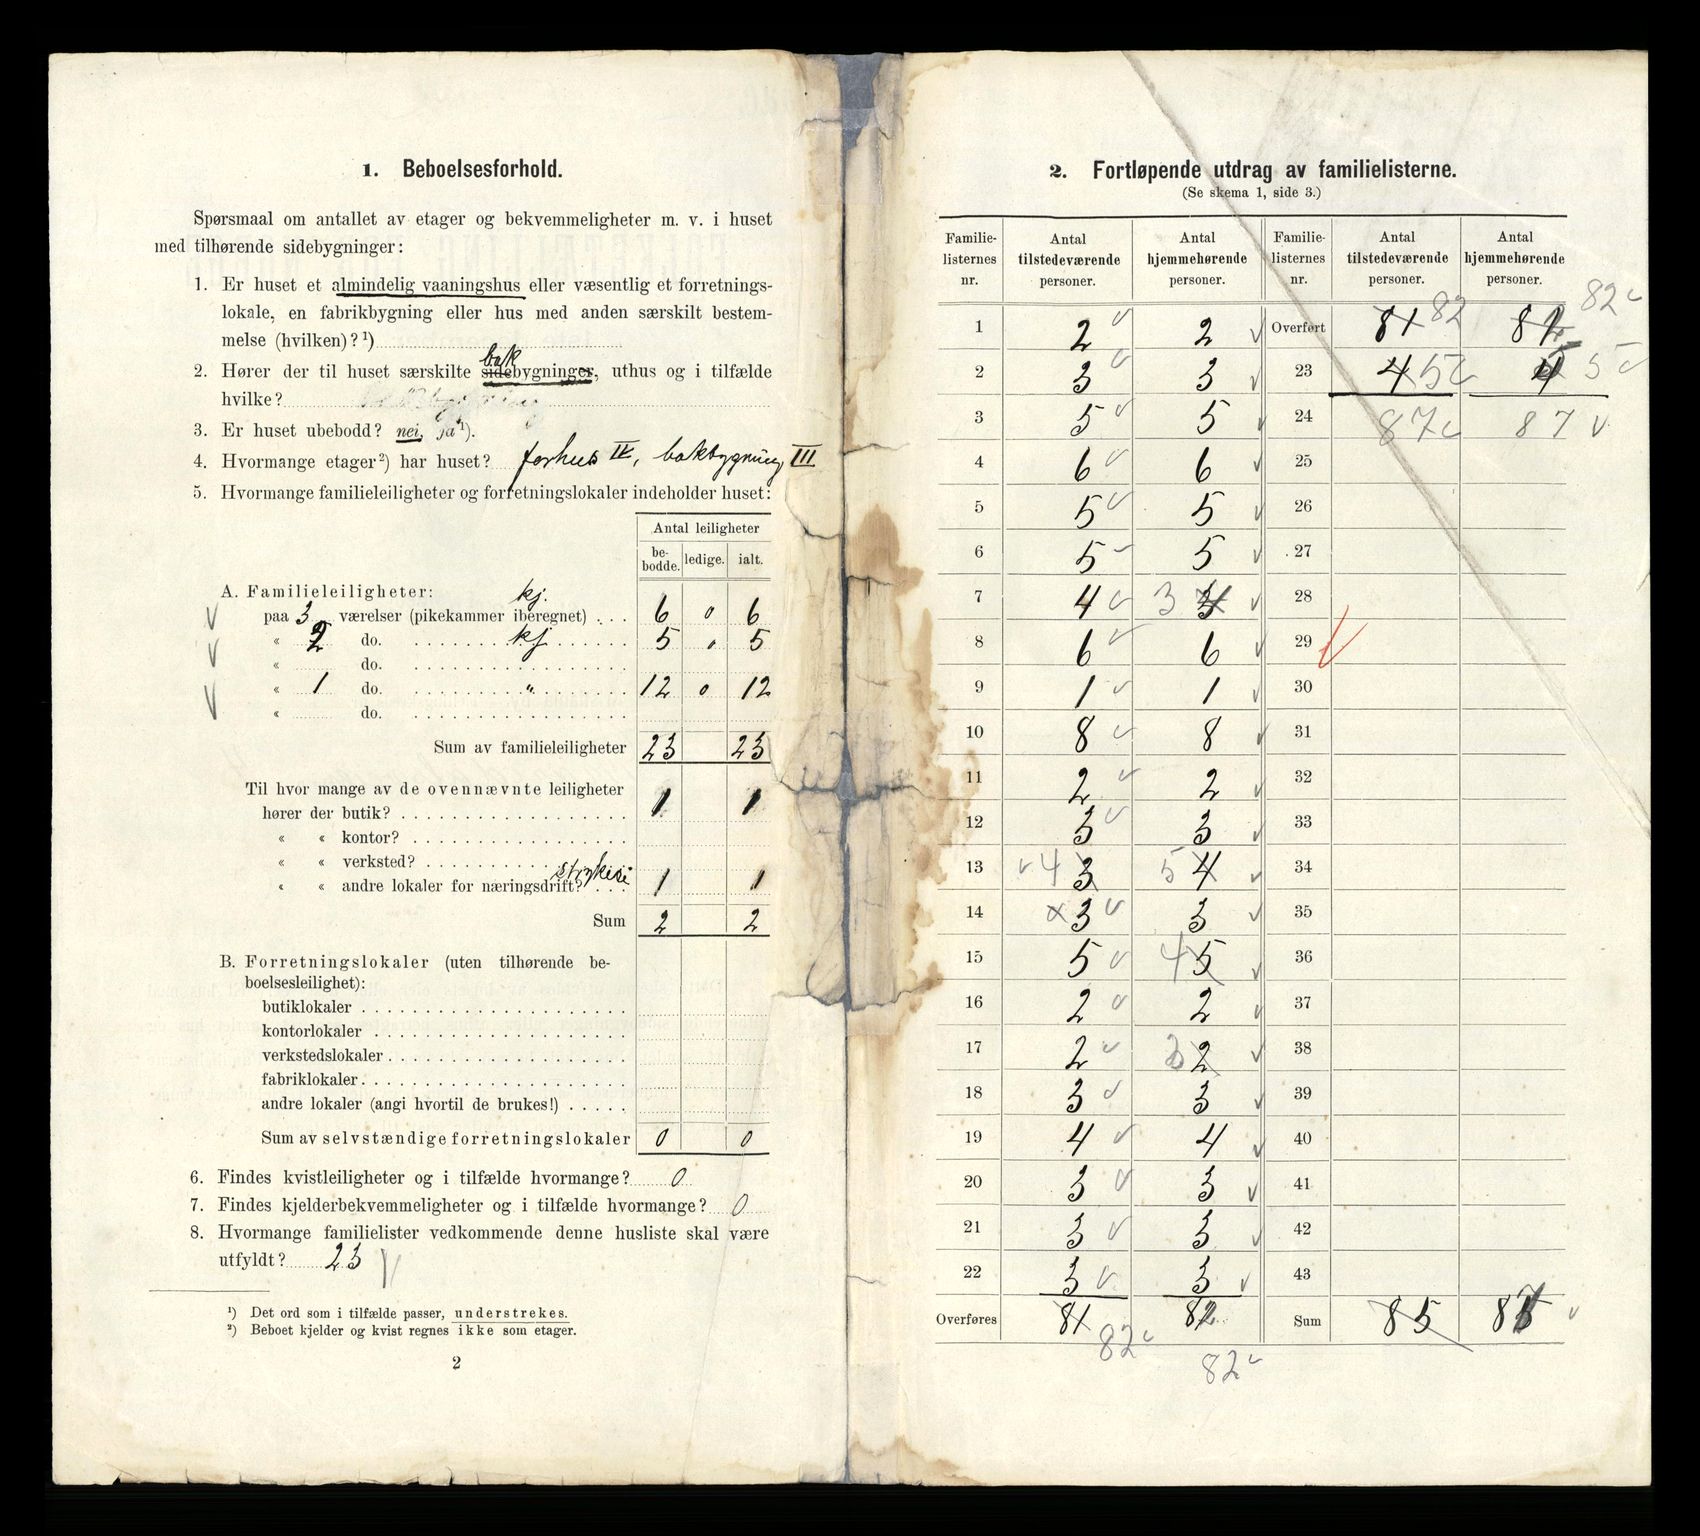 1. Beboelsesforhold.
Spørsmaal om antallet av etager og bekvemmeligheter m. v. i huset
med tilhørende sidebygninger:
1. Er huset et almindelig vaaningshus eller væsentlig et forretnings-
lokale, en fabrikbygning eller hus med anden særskilt bestem-
melse (hvilken)?¹)
bak
2. Hører der til huset særskilte sidebygninger, uthus og i tilfælde
hvilke?
3. Er huset ubebodd? nei, ja¹).
4. Hvormange etager²) har huset? forhus IV, bakbygning III
5. Hvormange familieleiligheter og forretningslokaler indeholder huset:
Antal leiligheter
be-bodde. ledige. ialt.
A. Familieleiligheter: kj.
paa 3 værelser (pikekammer iberegnet) . . . 6 0 6
« 2 do. kj 5 0 5
« do.
« 1 do. " 12 0 12
« do.
Sum av familieleiligheter 23 23
Til hvor mange av de ovennævnte leiligheter
hører der butik? 1 1
« « kontor?
« « verksted?
strykeri
« « andre lokaler for næringsdrift? 1 1
Sum 2 2
B. Forretningslokaler (uten tilhørende be-
boelsesleilighet):
butiklokaler
kontorlokaler
verkstedslokaler
fabriklokaler
andre lokaler (angi hvortil de brukes!)
Sum av selvstændige forretningslokaler 0 0
6. Findes kvistleiligheter og i tilfælde hvormange? 0
7. Findes kjelderbekvemmeligheter og i tilfælde hvormange? 0
8. Hvormange familielister vedkommende denne husliste skal være
utfyldt? 23
¹) Det ord som i tilfælde passer, understrekes.
²) Beboet kjelder og kvist regnes ikke som etager.
2
2. Fortløpende utdrag av familielisterne.
(Se skema 1, side 3.)
Familie-listernes nr. Antal tilstedeværende personer. Antal hjemmehørende personer. Familie-listernes nr. Antal tilstedeværende personer. Antal hjemmehørende personer.
1 2 2 Overført 81 82 82 82
2 3 3 23 4 5 5
3 5 5 24 87 87
4 6 6 25
5 5 5 26
6 5 5 27
7 4 3 28
8 6 6 29
9 1 1 30
10 8 8 31
11 2 2 32
12 3 3 33
13 4 3 5 4 34
14 3 3 35
15 5 4 5 36
16 2 2 37
17 2 3 2 38
18 3 3 39
19 4 4 40
20 3 3 41
21 3 3 42
22 3 3 43
Overføres 81 82 Sum 85 87
82 82